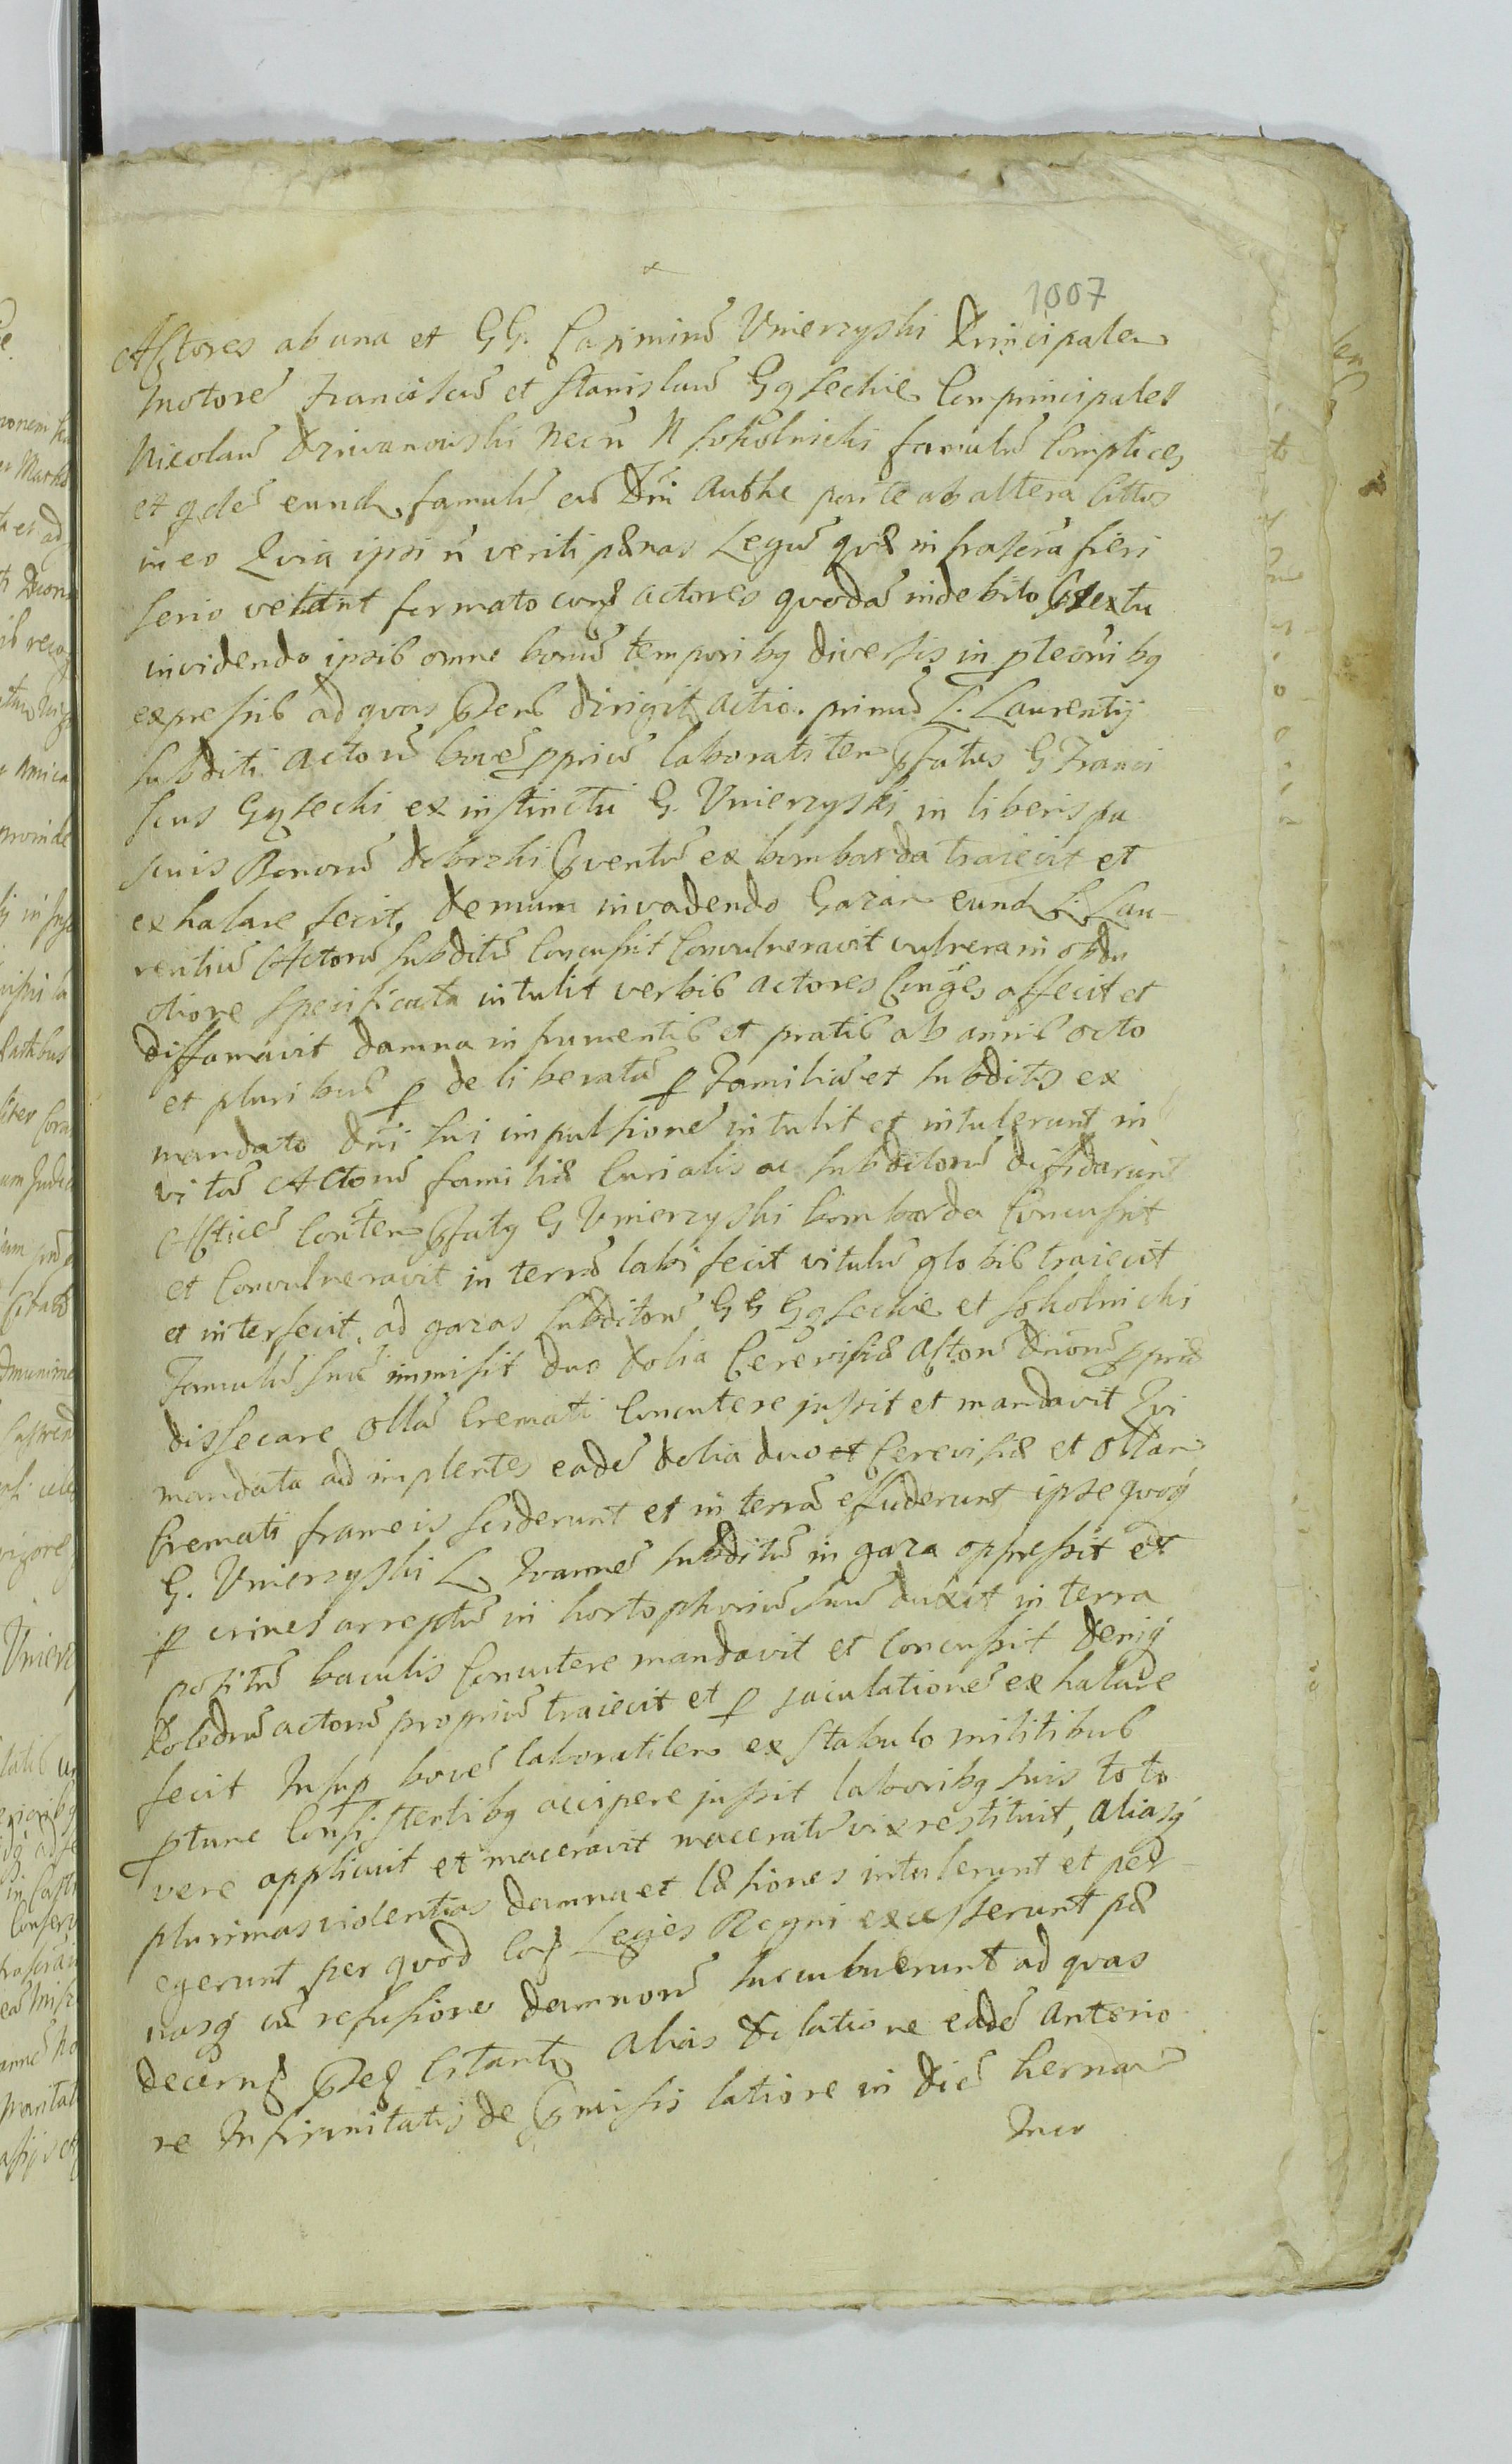 1007
Actores ab una et GG. Casimirũ Unierzyski Principalem
motorẽ Franciscũ et Stanislaũ Gąseckie Comprincipales
Nicolaũ Drwanowski necñ N Sokolnicki famulũ Complices
et qdẽ eund famulũ eiũ Dni Authẽ parte ab altera Cittos
in eo Quia ipsi ñ veriti pænas Legũ quæ infrascra fieri
serio vetant firmato actores quodã indebito prætextu
invidendo ipsib omne bonũ temporibꝫ diversis in pteonibꝫ
expressib ad quas Pens dirigit actio. primũ L. Laurentij
subditi actorũ bovẽ ppriũ laboratilem Pfatus G Franci
scus Gąsecki ex instinctu G. Unierzyski in liberis pa
scuis Bonorũ Dobrski Pventũ ex bombarda traiecit et
exhalare fecit, Demum invadendo Gazam eund L. Lau-
rentiũ Actorũ subditũ Concussit Convulneravit vulnera in obdu
ctione specificata intulit verbib actores Cinges affecit et
diffamavit damna in frumentib et pratib ab annib octo
et pluribus p deliberatũ p Familiã et subditos ex
mandato Dni sui impulsionẽ intulit et intulerunt in
vitã Actorũ familiæ Curialis ac subditorũ diffidarunt
Actricẽ Conten Pfatꝫ G Unierzyski bombarda Concussit
et Convulneravit in terrã labi fecit vitulũ globib traiecit
et interfecit, ad gazas subditorũ GG Gąseckie et Sokolnicki
Famulũ suũ immisit duo dolia Cerevisiæ Actorũ Dnorũ ppria
dissecare ollã Cremati Concutere jussit et mandavit Qui
mandata adimplentes eadẽ dolia duo et Cerevisiæ et ollam
Cremati frameis sciderunt et in terrã effuderunt ipse quoqꝫ
G. Unierzyski L Joannẽ subditũ in gaza oppressit et
p crines arreptũ in hortophoriũ suũ duxit in terra
positũ baculis Concutere mandavit et Concussit Deniqꝫ
Poledrũ actorũ propriũ traiecit et p jaculationẽ exhalare
fecit Insup bovẽ laboratilem ex stabulo militibus
ptunc Consistentibꝫ accipere jussit laboribꝫ suis toto
vere applicuit et maceravit maceratũ vix restituit, aliasqꝫ
plurimas violentias damna et læsiones intulerunt et per-
egerunt per quod Leges Regni excesserunt pæ
nasqꝫ cũ refusione damnorũ succubuerunt ad quas
decern Citant alias Dilatione eadẽ anterio
re Infirmitatis de Pmissis latiore in Diẽ hernã